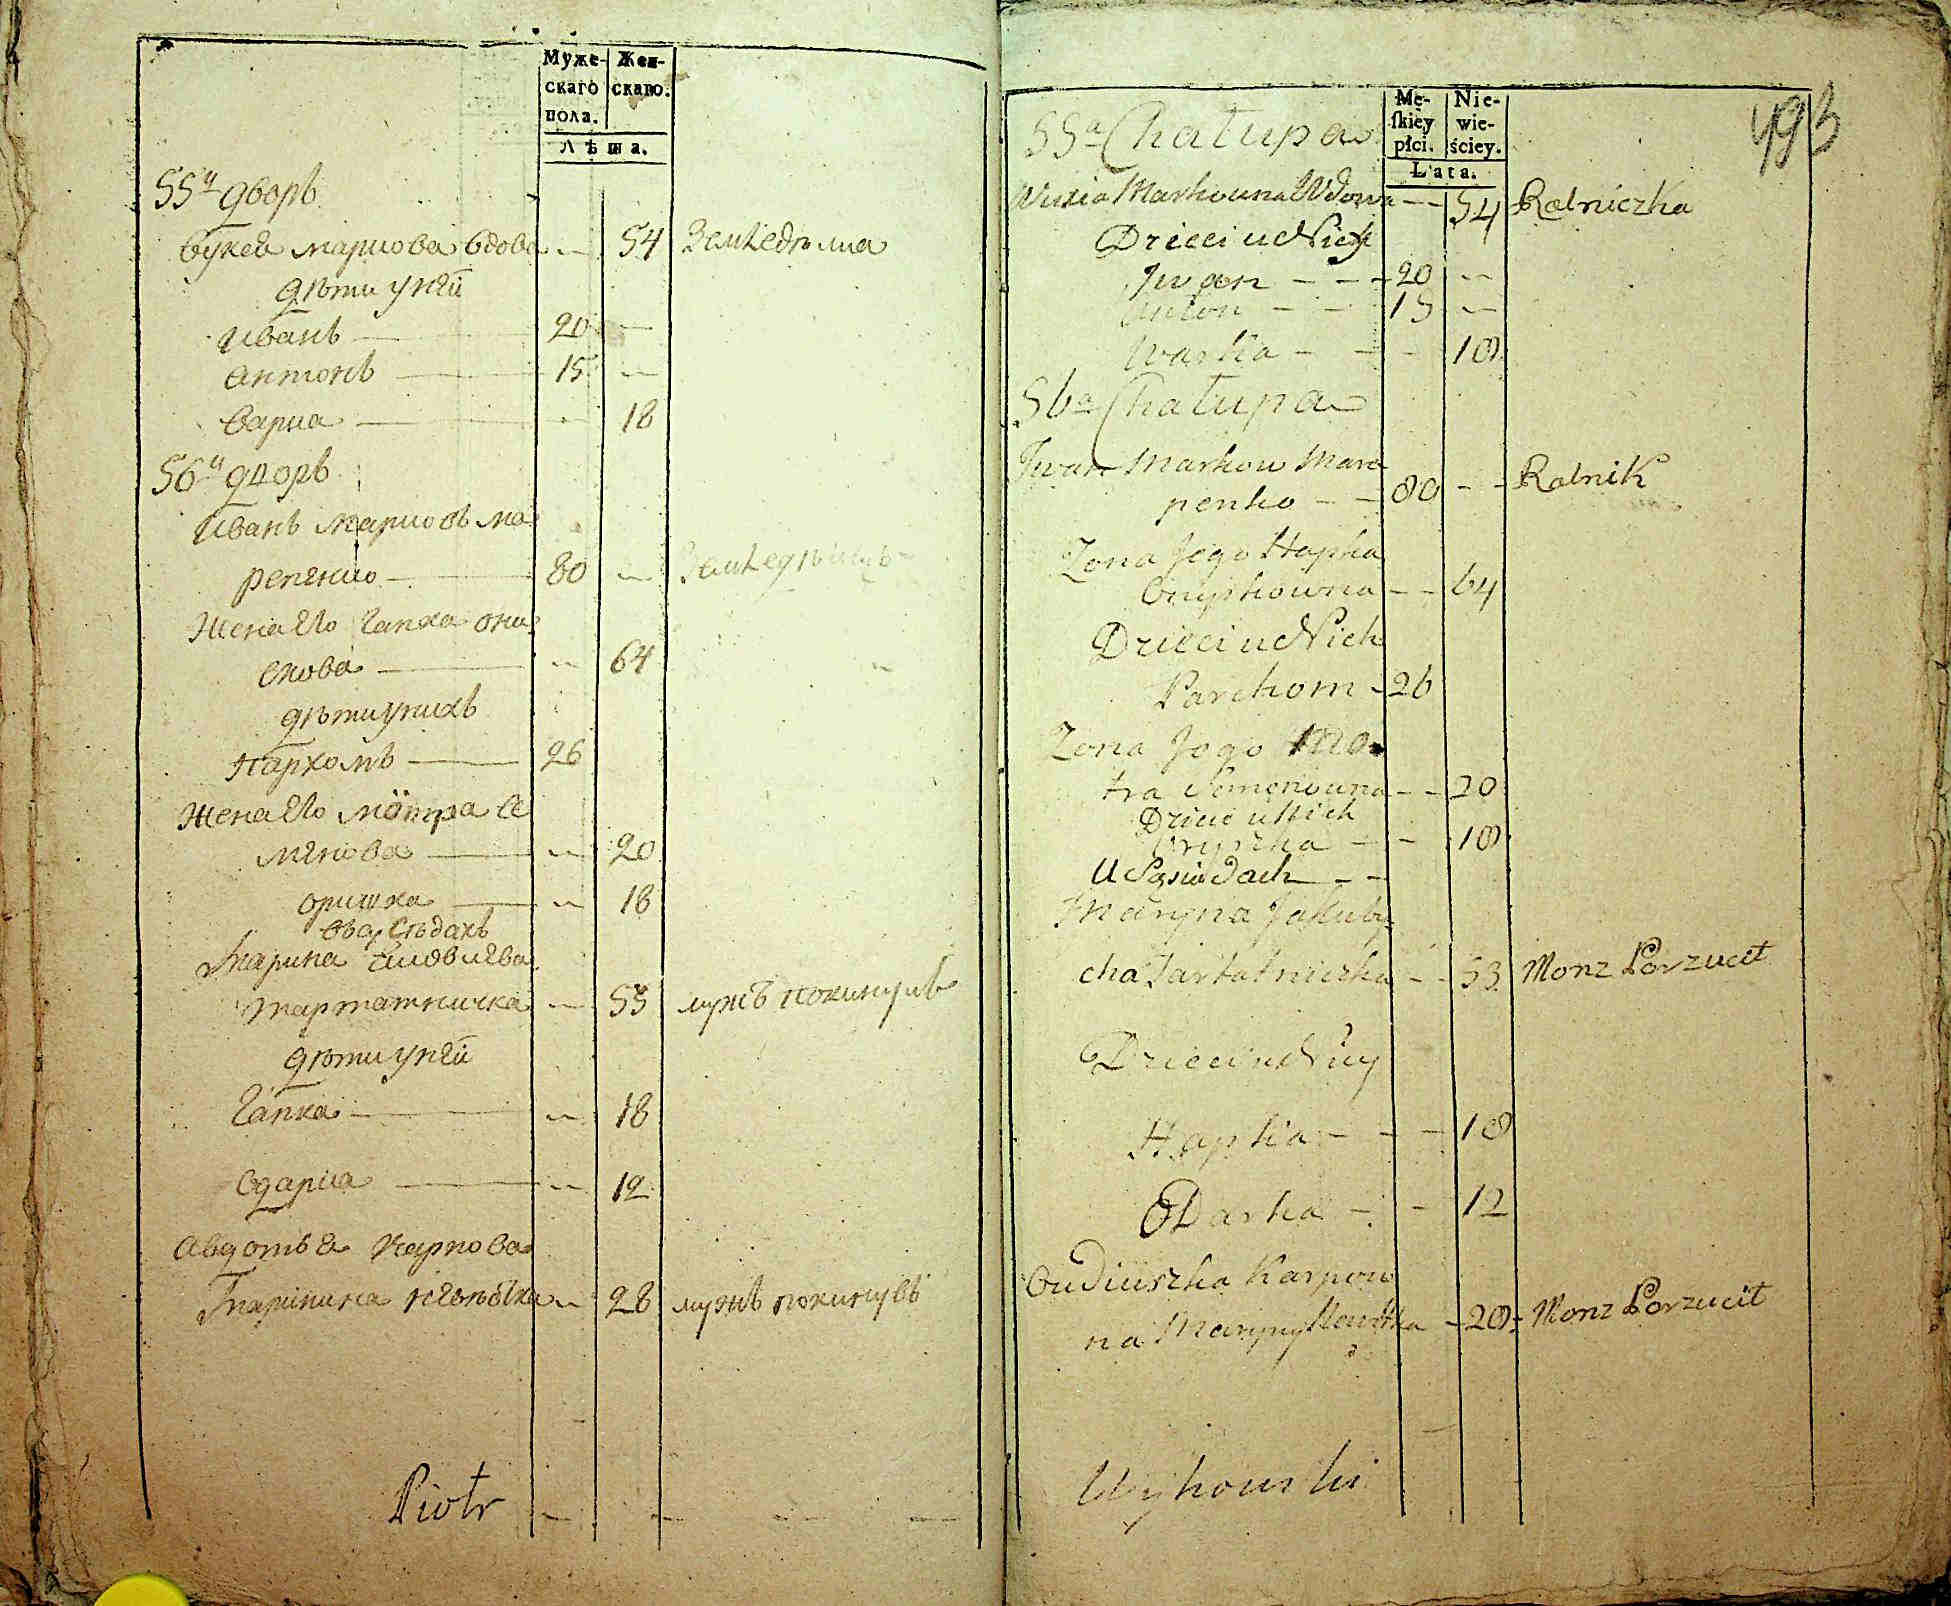 Муже-
скаго
пола.
Жен-
скаго.
лѣта.
55й дворъ
Вукея маркова вдова — 54 Земледѣлка
дѣти у ней
Иванъ — 20 —
Антонъ — 15 —
Варка — 18
56й дворъ
Иванъ Марковъ Ма
репенко — 80 — Земледѣлецъ
Жена Его Гапка они
скова — 64
дѣти у нихъ
Пархомъ — 26
Жена Его Мотра Се
менова — 20
Оришка — 18
Въ сусѣдахъ
Марина
Тартатничка — 53 мужъ покинулъ
дѣти у ней
Гапка — 18
Одарка — 12
Авдотья Карпова
Маринина невѣстка — 28 мужъ покинувъ
Piotr
493
Mę-
ſkiey
płci.
Nie-
wie-
ściey.
Lata.
55a Chałupa
Markowna Wdowa — 54 Rolniczka
Dzieci u Niey
Jwan — 20 —
Anton — 15 —
Warka — 18
56a Chałupa
Jwan Markow Mare
penko — 80 — Rolnik
Zona Jego Hapka
Onyskowna — 64
Dzieci u Nich
Parchom — 26
Zona Jego Mo
tra Semenowna — 20
Dzieci u Nich
Oryszka — 18
U Sąsiadach —
Maryna Jakuby
cha Tartatniczka — 53 Monz Porzucił
Dzieci u Niey
Hapka — 18
Odarka — 12
Owdiuszka Karpow
na Maryny Newistka — 28 Monz Porzucił
Wyhowski